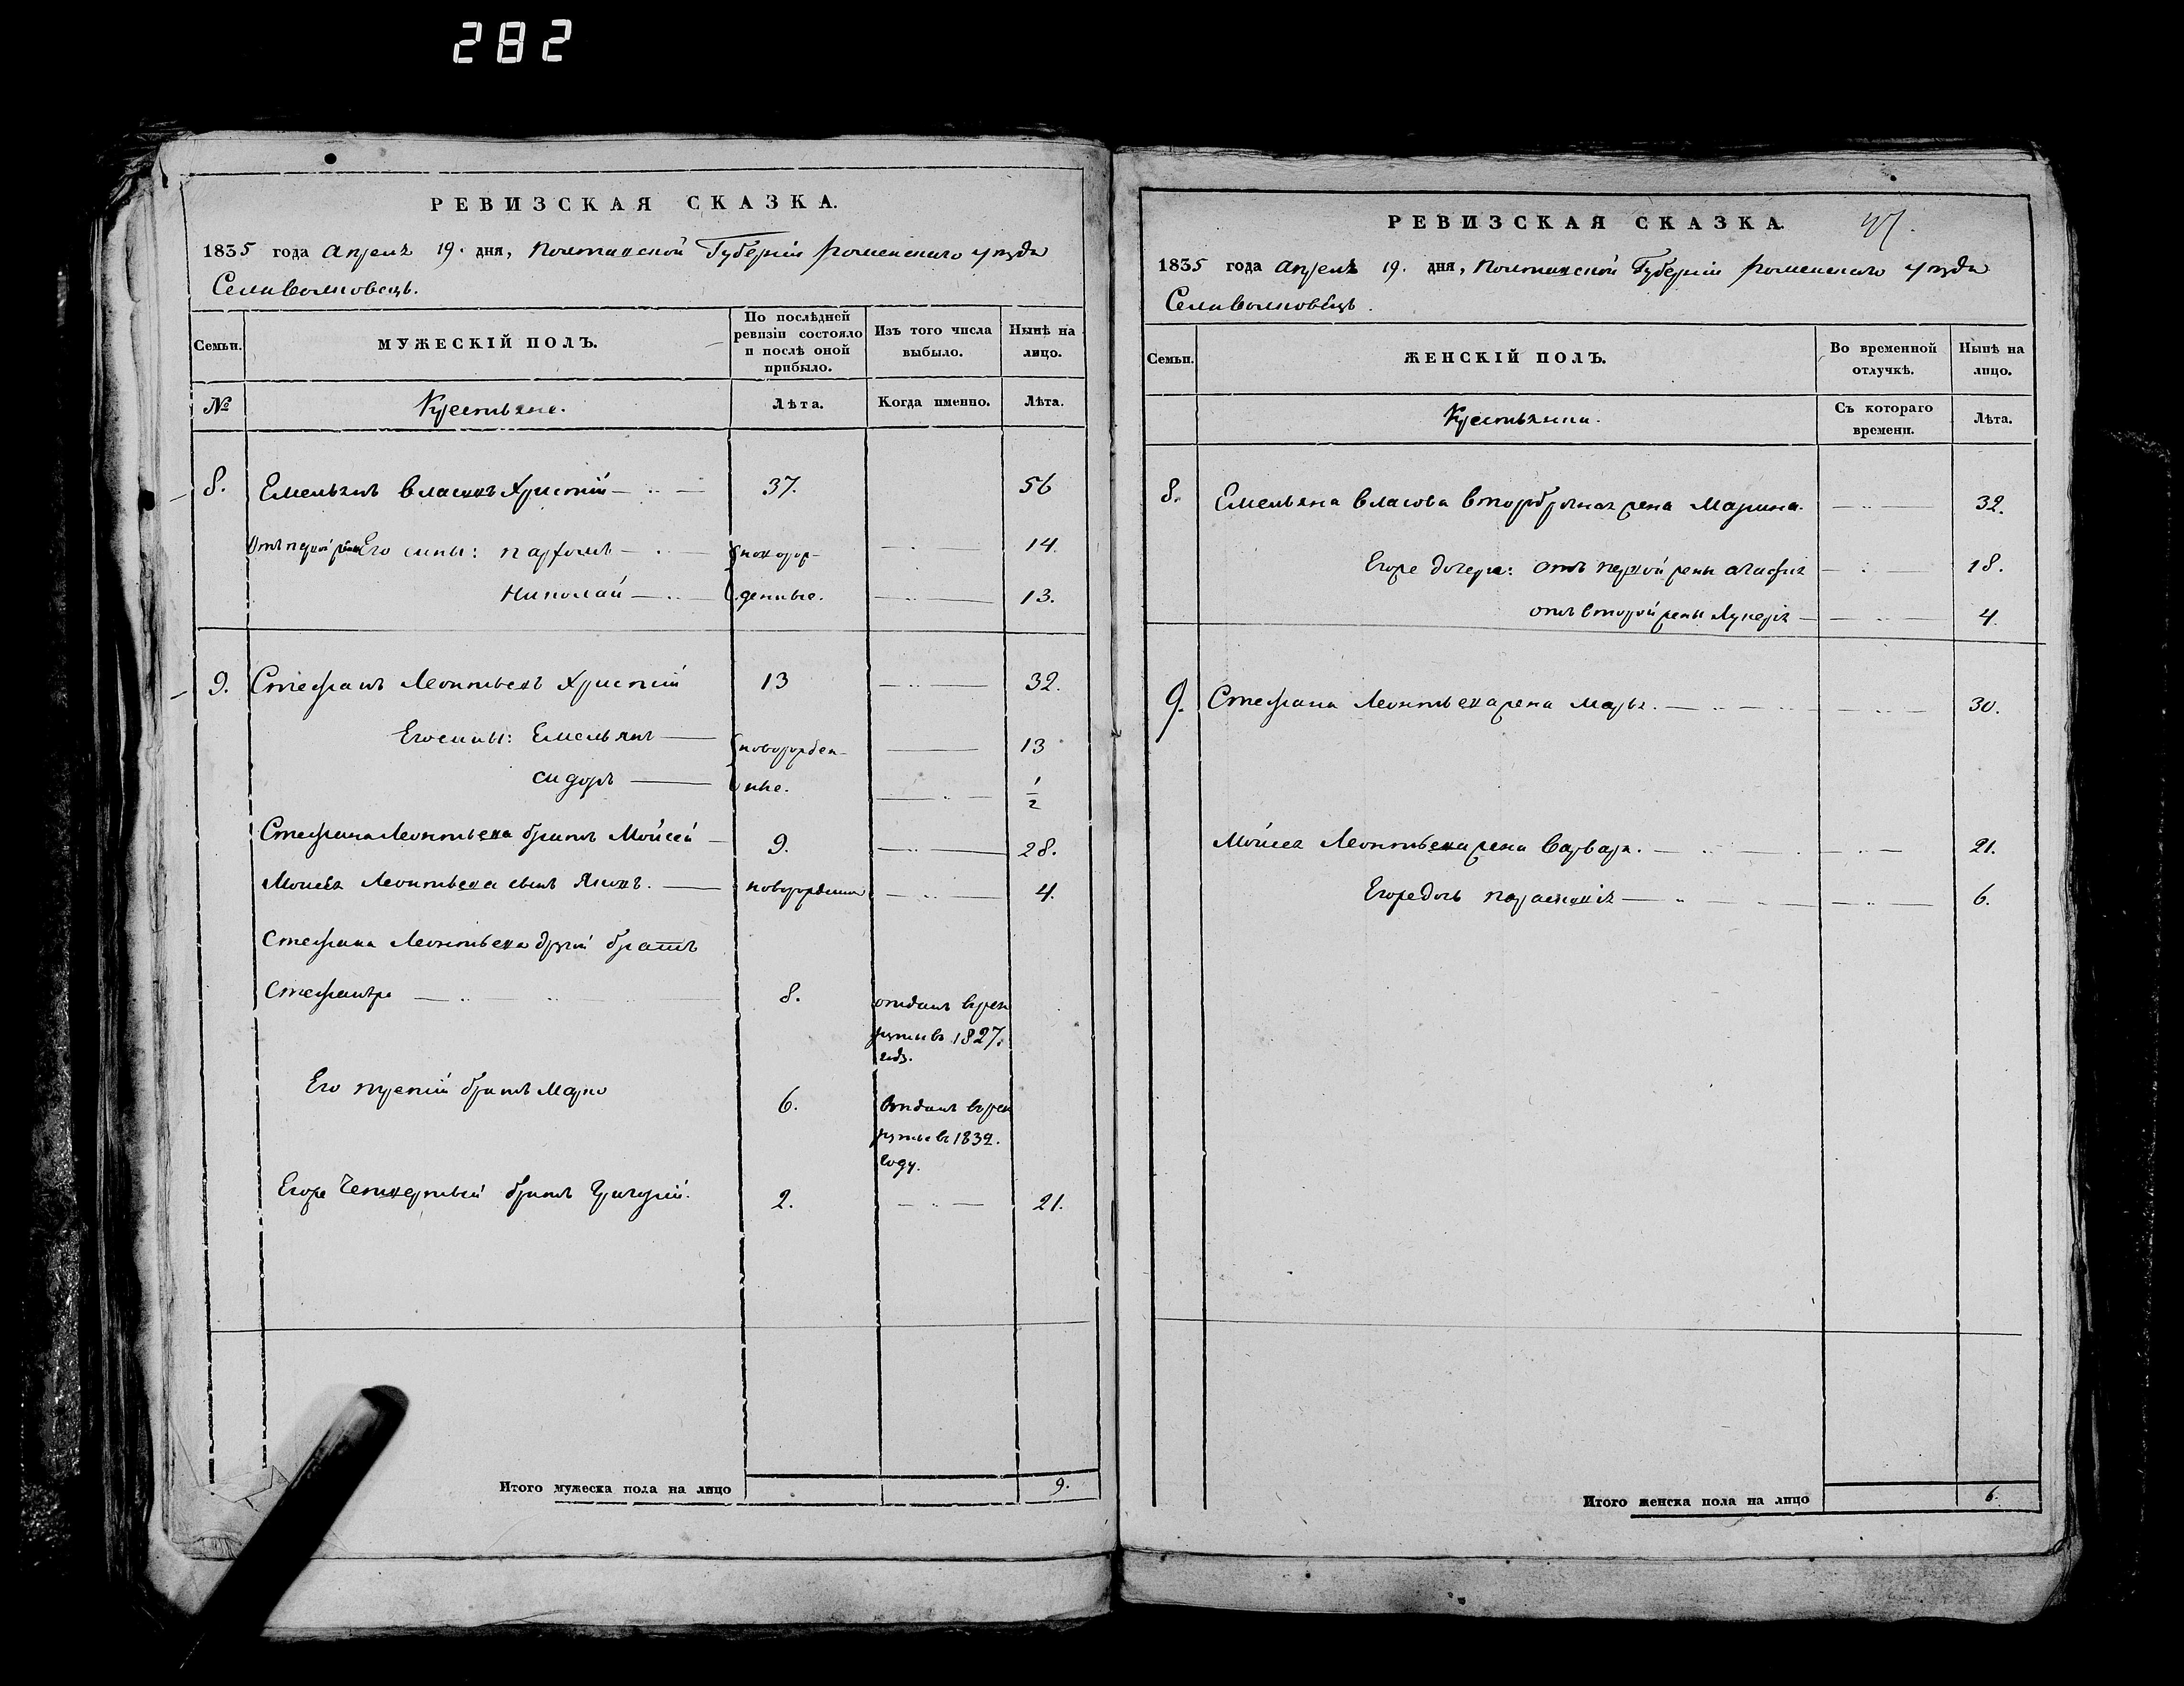 282
РЕВИЗСКАЯ СКАЗКА.
1835 года Апреля 19. дня, Полтавской Губерніи Роменского уезда
Села Волковецъ.
Семьи.
МУЖЕСКІЙ ПОЛЪ.
По послѣдней ревизіи состояло и послѣ оной прибыло.
Изъ того числа выбыло.
Нынѣ на лицо.
№
Крестьяне.
Лѣта.
Когда именно.
Лѣта.
8. Емельянъ Власовъ Христій 37. 56
Отъ первой жены Его сыны: Парфомъ новорож- 14.
Николай денные. 13.
9. Стефанъ Леонтьевъ Христій 13 32.
Его сыны: Емельянъ новорожден- 13
Сидоръ ные. 1/2
Стефана Леонтьева братъ Мойсей 9. 28.
Мойсея Леонтьева сынъ Яковъ. новорожденный 4.
Стефана Леонтьева другій братъ
Стефанъже 8. отданъ врек
руты въ 1827.
годѣ.
Его третій братъ Марко 6. Отданъ врек
руты въ 1832.
году.
Егоже Четвертый братъ Григорій. 2. 21.
Итого мужеска пола на лицо 9.
РЕВИЗСКАЯ СКАЗКА.
1835 года Апреля 19. дня, Полтавской Губерніи Роменского уезда
Села Волковецъ.
Семьи.
ЖЕНСКІЙ ПОЛЪ.
Во временной отлучкѣ.
Нынѣ на лицо.
Крестьянки.
Съ котораго времени.
Лѣта.
8. Емельяна Власова второбрачная жена Марина. 32.
Егоже дочери: отъ первой жены Агафия 18.
отъ второй жены Лукерія 4.
9. Стефана Леонтьева жена Марья. 30.
Мойсея Леонтьева жена Варвара. 21.
Егоже дочь Парасковія 6.
Итого женска пола на лицо 6.